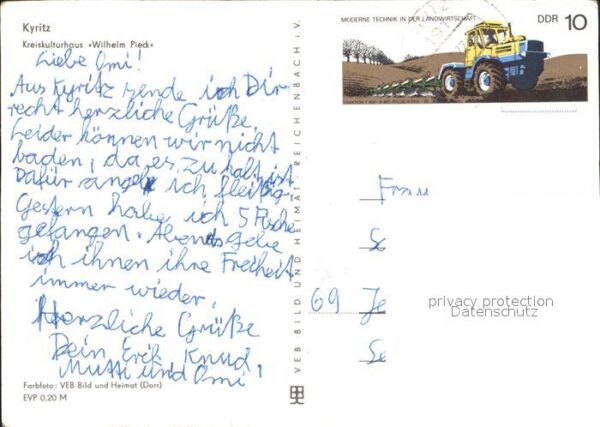 Kyritz
Kreiskulturhaus »Wilhelm Pieck«
Liebe Omi!
Aus Kyritz sende ich Dir
recht herzliche Grüße.
Leider können wir nicht
baden, da es zu kalt ist
Dafür angle ich fleißig.
Gestern habe ich 5 Fische
gefangen. Abends gebe
ich ihnen ihre Freiheit
immer wieder.
Herzliche Grüße
Dein Erik, Knud,
Mutti und Omi!
Farbfoto: VEB Bild und Heimat (Darr)
EVP 0,20 M
VEB BILD UND HEIMAT REICHENBACH i. V.
MODERNE TECHNIK IN DER LANDWIRTSCHAFT
DDR 10
Frau
Sc
69 Je
Se
privacy protection
Datenschutz